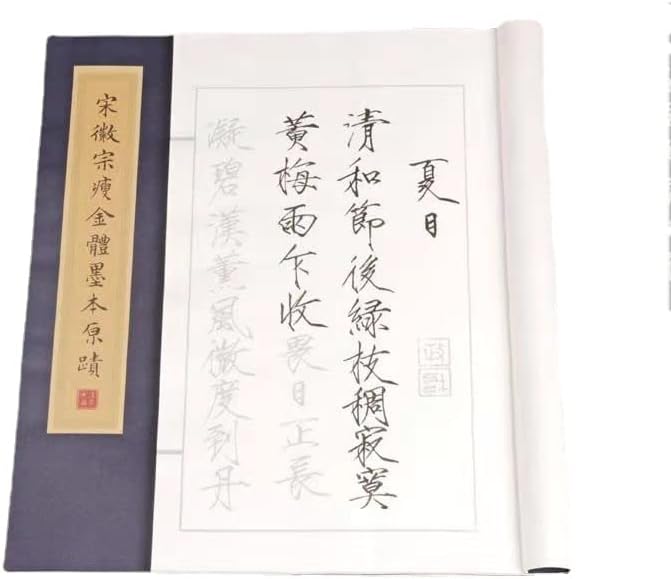 夏日
清和節後緑枝稠寂寞
黄梅雨乍收畏日正長
凝碧漢薫風微度到丹
宋徽宗瘦金體墨本原蹟